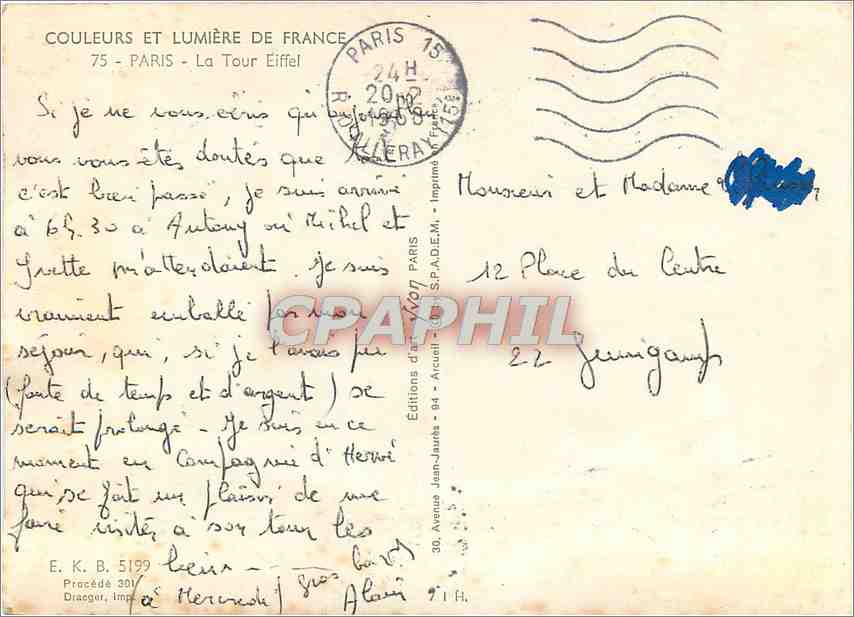 COULEURS ET LUMIÈRE DE FRANCE
75 - PARIS - La Tour Eiffel
Si je ne vous écris qu'aujourd'hui
vous vous êtes doutés que tout
c'est bien passé, je suis arrivé
à 6h.30 à Antony où Michel et
Yvette m'attendaient. Je suis
vraiment emballé par mon
séjour, qui, si je l'avais pu
(faute de temps et d'argent) se
serait prolongé - Je suis en ce
moment en compagnie d'Hervé
qui se fait un plaisir de me
faire visiter à son tour les
lieux -
(à Mercredi) gros
Alain
E. K. B. 5199
Procédé 301
Draeger, Imp.
PARIS 15
24H
20
(15e)
Éditions d'art Yvon PARIS
30, Avenue Jean-Jaurès - 94 - Arcueil - by S.P.A.D.E.M. - Imprimé en France
Monsieur et Madame
12 Place du Centre
22 Guingamp
I H.
CPAPHIL